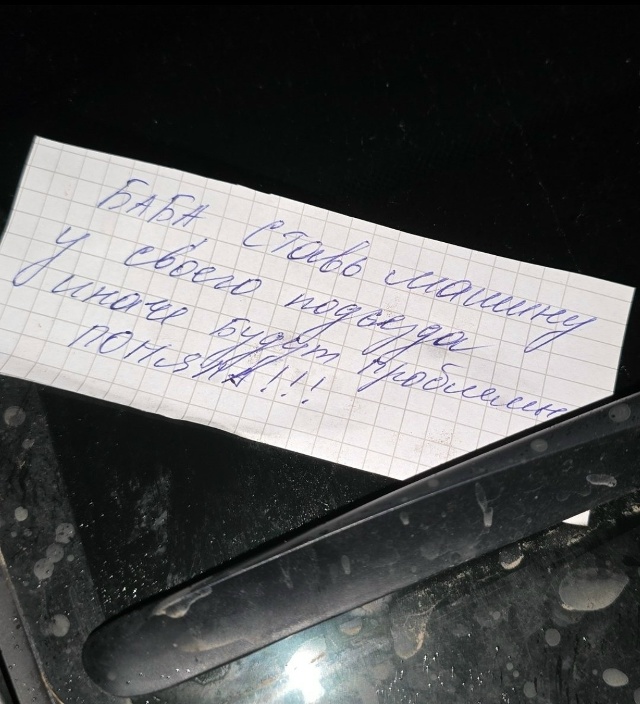 БАБА ставь машину
у своего подъезда
иначе будет проблемы
ПОНЯЛА!!!